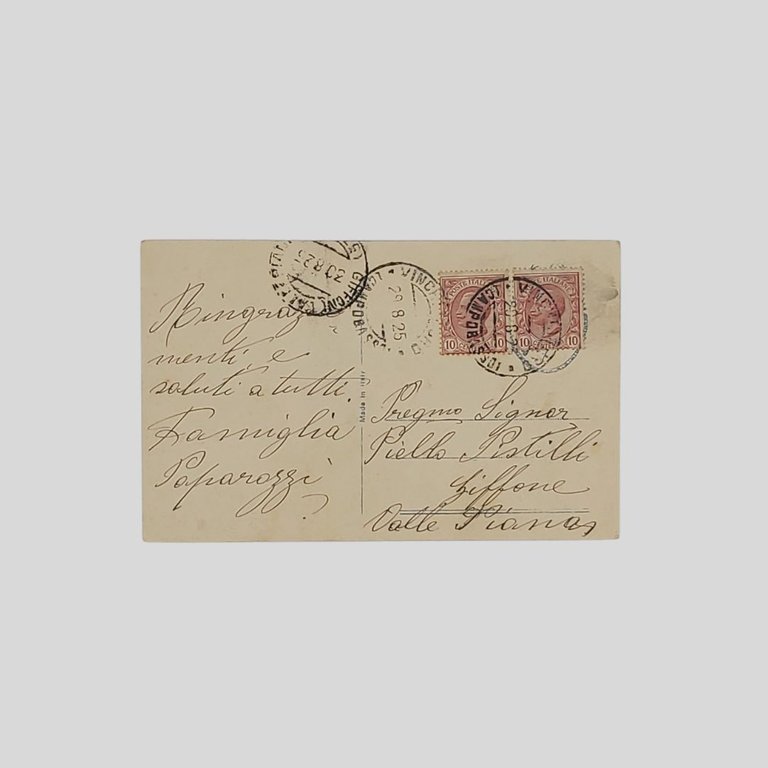 Ringrazia
menti, e
saluti a tutti.
Famiglia
Paparozzi
Made in Italy
GIFFONI
30.8.25
VINCHIATURO
(CAMPOBASSO)
29.8.25
POSTE ITALIANE
10 10
POSTE ITALIANE
10 10
Pregmo Signor
Piello Pistilli
Giffone
Valle Piana